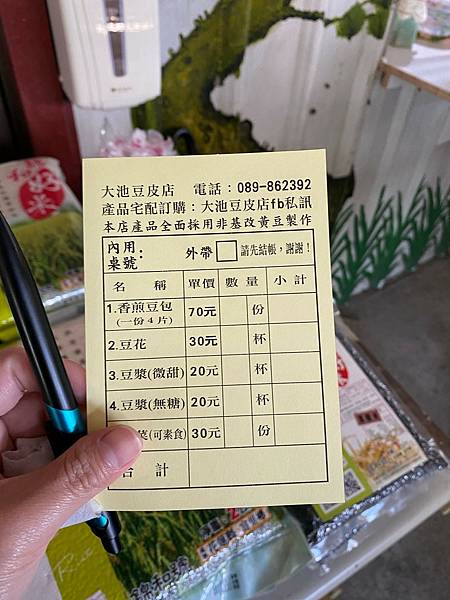 大池豆皮店 電話：089-862392
產品宅配訂購：大池豆皮店fb私訊
本店產品全面採用非基改黃豆製作
內用 桌號： 外帶 請先結帳，謝謝！
名稱 單價 數量 小計
1.香煎豆包 (一份4片) 70元 份
2.豆花 30元 杯
3.豆漿(微甜) 20元 杯
4.豆漿(無糖) 20元 杯
菜(可素食) 30元 份
合計